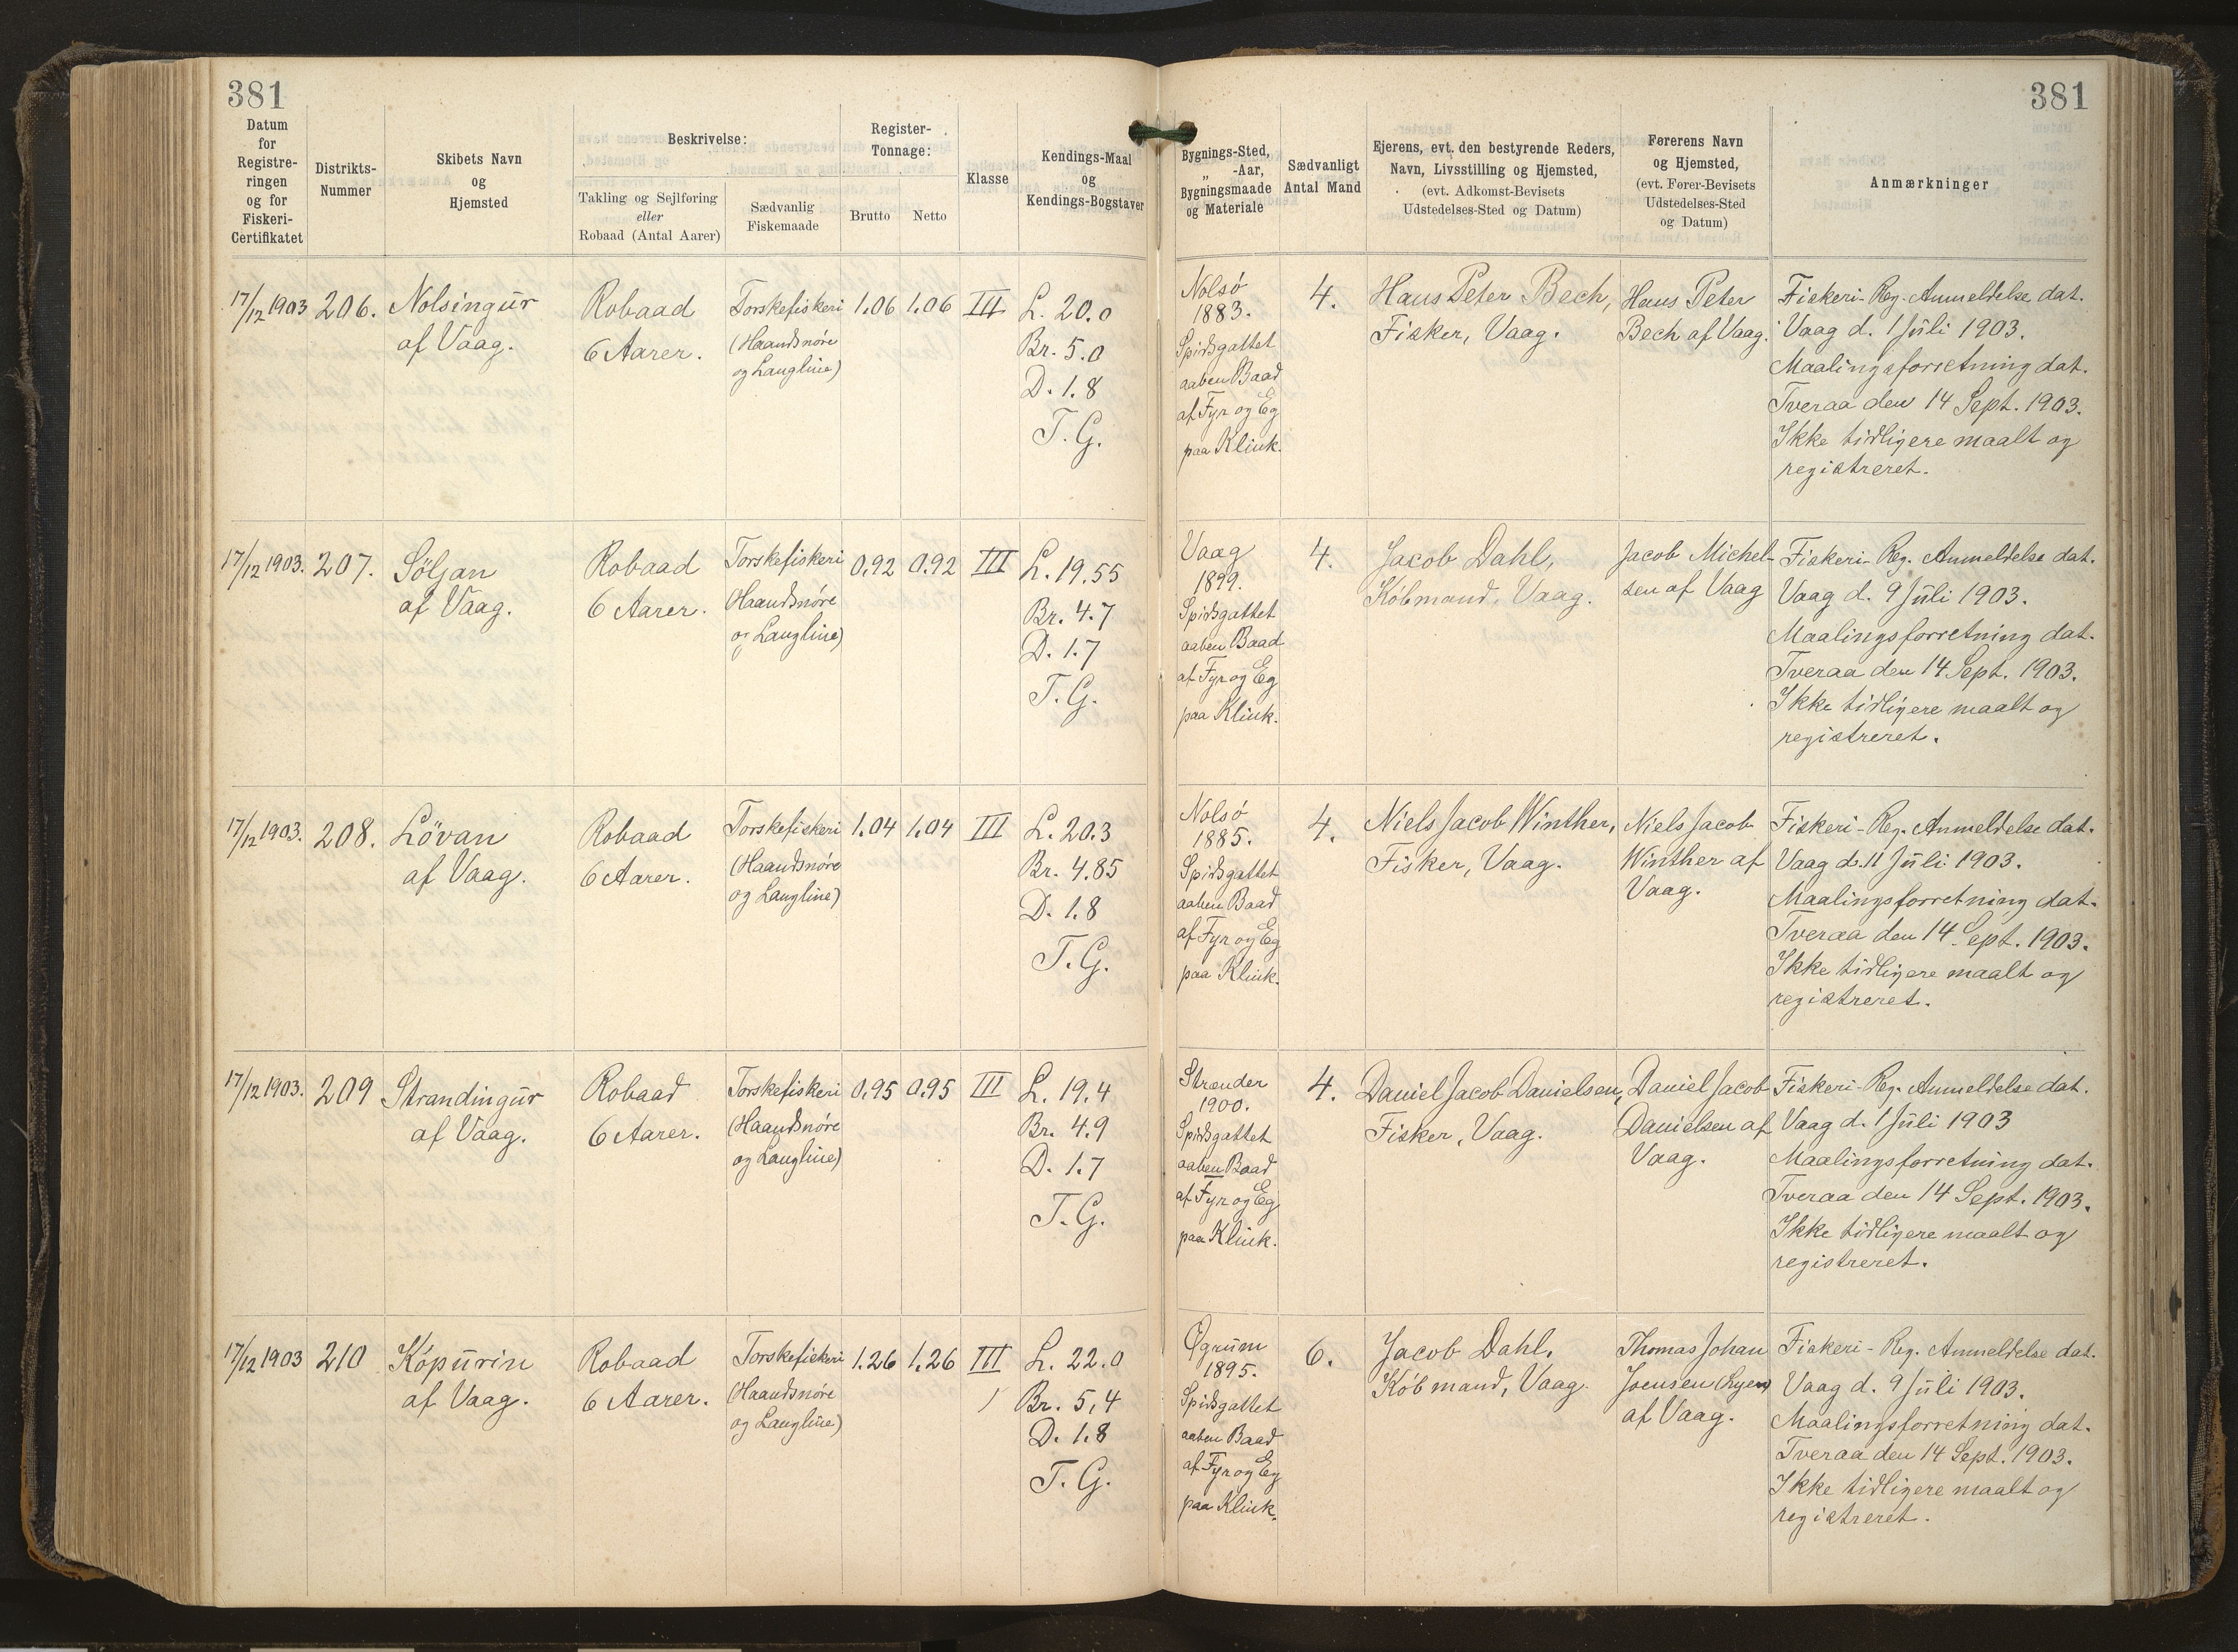 381
381
Datum
for
Registre-
ringen
og for
Fiskeri-
Certifikatet
Distrikts-
Nummer
Skibets Navn
og
Hjemsted
Beskrivelse:
Takling og Sejlføring
eller
Robaad (Antal Aarer)
Sædvanlig
Fiskemaade
Register-
Tonnage:
Brutto
Netto
Klasse
Kendings-Maal
og
Kendings-Bogstaver
Bygnings-Sted,
„ -Aar,
Bygningsmaade
og Materiale
Sædvanligt
Antal Mand
Ejerens, evt. den bestyrende Reders,
Navn, Livsstilling og Hjemsted,
(evt. Adkomst-Bevisets
Udstedelses-Sted og Datum)
Førerens Navn
og Hjemsted,
(evt. Fører-Bevisets
Udstedelses-Sted
og Datum)
Anmærkninger
17/12 1903
206.
Nolsingur
af Vaag.
Robaad
6 Aarer.
Torskefiskeri
(Haandsnøre
og Langline)
1.06
1.06
III
L. 20.0
Br. 5.0
D. 1.8
T. G.
Nolsó
1883.
Spidsgattet
aaben Baad
af Fyr og Eg
paa Klink.
4.
Hans Peter Bech,
Fisker, Vaag.
Hans Peter
Bech af Vaag.
Fiskeri-Reg. Anmeldelse dat.
Vaag d. 1 Juli 1903.
Maalingsforretning dat.
Tveraa den 14 Sept. 1903.
Ikke tidligere maalt og
registreret.
17/12 1903.
207.
Söljan
af Vaag.
Robaad
6 Aarer.
Torskefiskeri
(Haandsnöre
og Langline)
0.92
0.92
III
L. 19.55
Br. 4.7
D. 1.7
T. G.
Vaag
1899.
Spidsgattet
aaben Baad
af Fyr og Eg
paa Klink.
4.
Jacob Dahl,
Kóbmand, Vaag.
Jacob Michel-
sen af Vaag
Fiskeri-Reg. Anmeldelse dat.
Vaag d. 9 Juli 1903.
Maalingsforretning dat.
Tveraa den 14 Sept. 1903.
Ikke tidligere maalt og
registreret.
17/12 1903.
208.
Lövan
af Vaag.
Robaad
6 Aarer.
Torskefiskeri
(Haandsnöre
og Langline)
1.04
1.04
III
L. 20.3
Br. 4.85
D. 1.8
T. G.
Nolsó
1885.
Spidsgattet
aaben Baad
af Fyr og Eg
paa Klink.
4.
Niels Jacob Winther,
Fisker, Vaag.
Niels Jacob
Winther af
Vaag.
Fiskeri-Reg. Anmeldelse dat.
Vaag d. 11 Juli 1903.
Maalingsforretning dat.
Tveraa den 14 Sept. 1903.
Ikke tidligere maalt og
registreret.
17/12 1903.
209
Strandingur
af Vaag.
Robaad
6 Aarer.
Torskefiskeri
(Haandsnöre
og Langline)
0.95
0.95
III
L. 19.4
Br. 4.9
D. 1.7
T. G.
Strænder
1900.
Spidsgattet
aaben Baad
af Fyr og Eg
paa Klink.
4.
Daniel Jacob Danielsen,
Fisker, Vaag.
Daniel Jacob
Danielsen af
Vaag.
Fiskeri-Reg. Anmeldelse dat.
Vaag d. 1 Juli 1903
Maalingsforretning dat.
Tveraa den 14 Sept. 1903.
Ikke tidligere maalt og
registreret.
17/12 1903
210
Kópurin
af Vaag.
Robaad
6 Aarer.
Torskefiskeri
(Haandsnöre
og Langline)
1.26
1.26
III
L. 22.0
Br. 5,4
D. 1.8
T. G.
Øgrum
1895.
Spidsgattet
aaben Baad
af Fyr og Eg
paa Klink.
6.
Jacob Dahl,
Kóbmand, Vaag.
Thomas Johan
Joensen
af Vaag.
Fiskeri-Reg. Anmeldelse dat.
Vaag d. 9 Juli 1903.
Maalingsforretning dat.
Tveraa den 14 Sept. 1903.
Ikke tidligere maalt og
registreret.